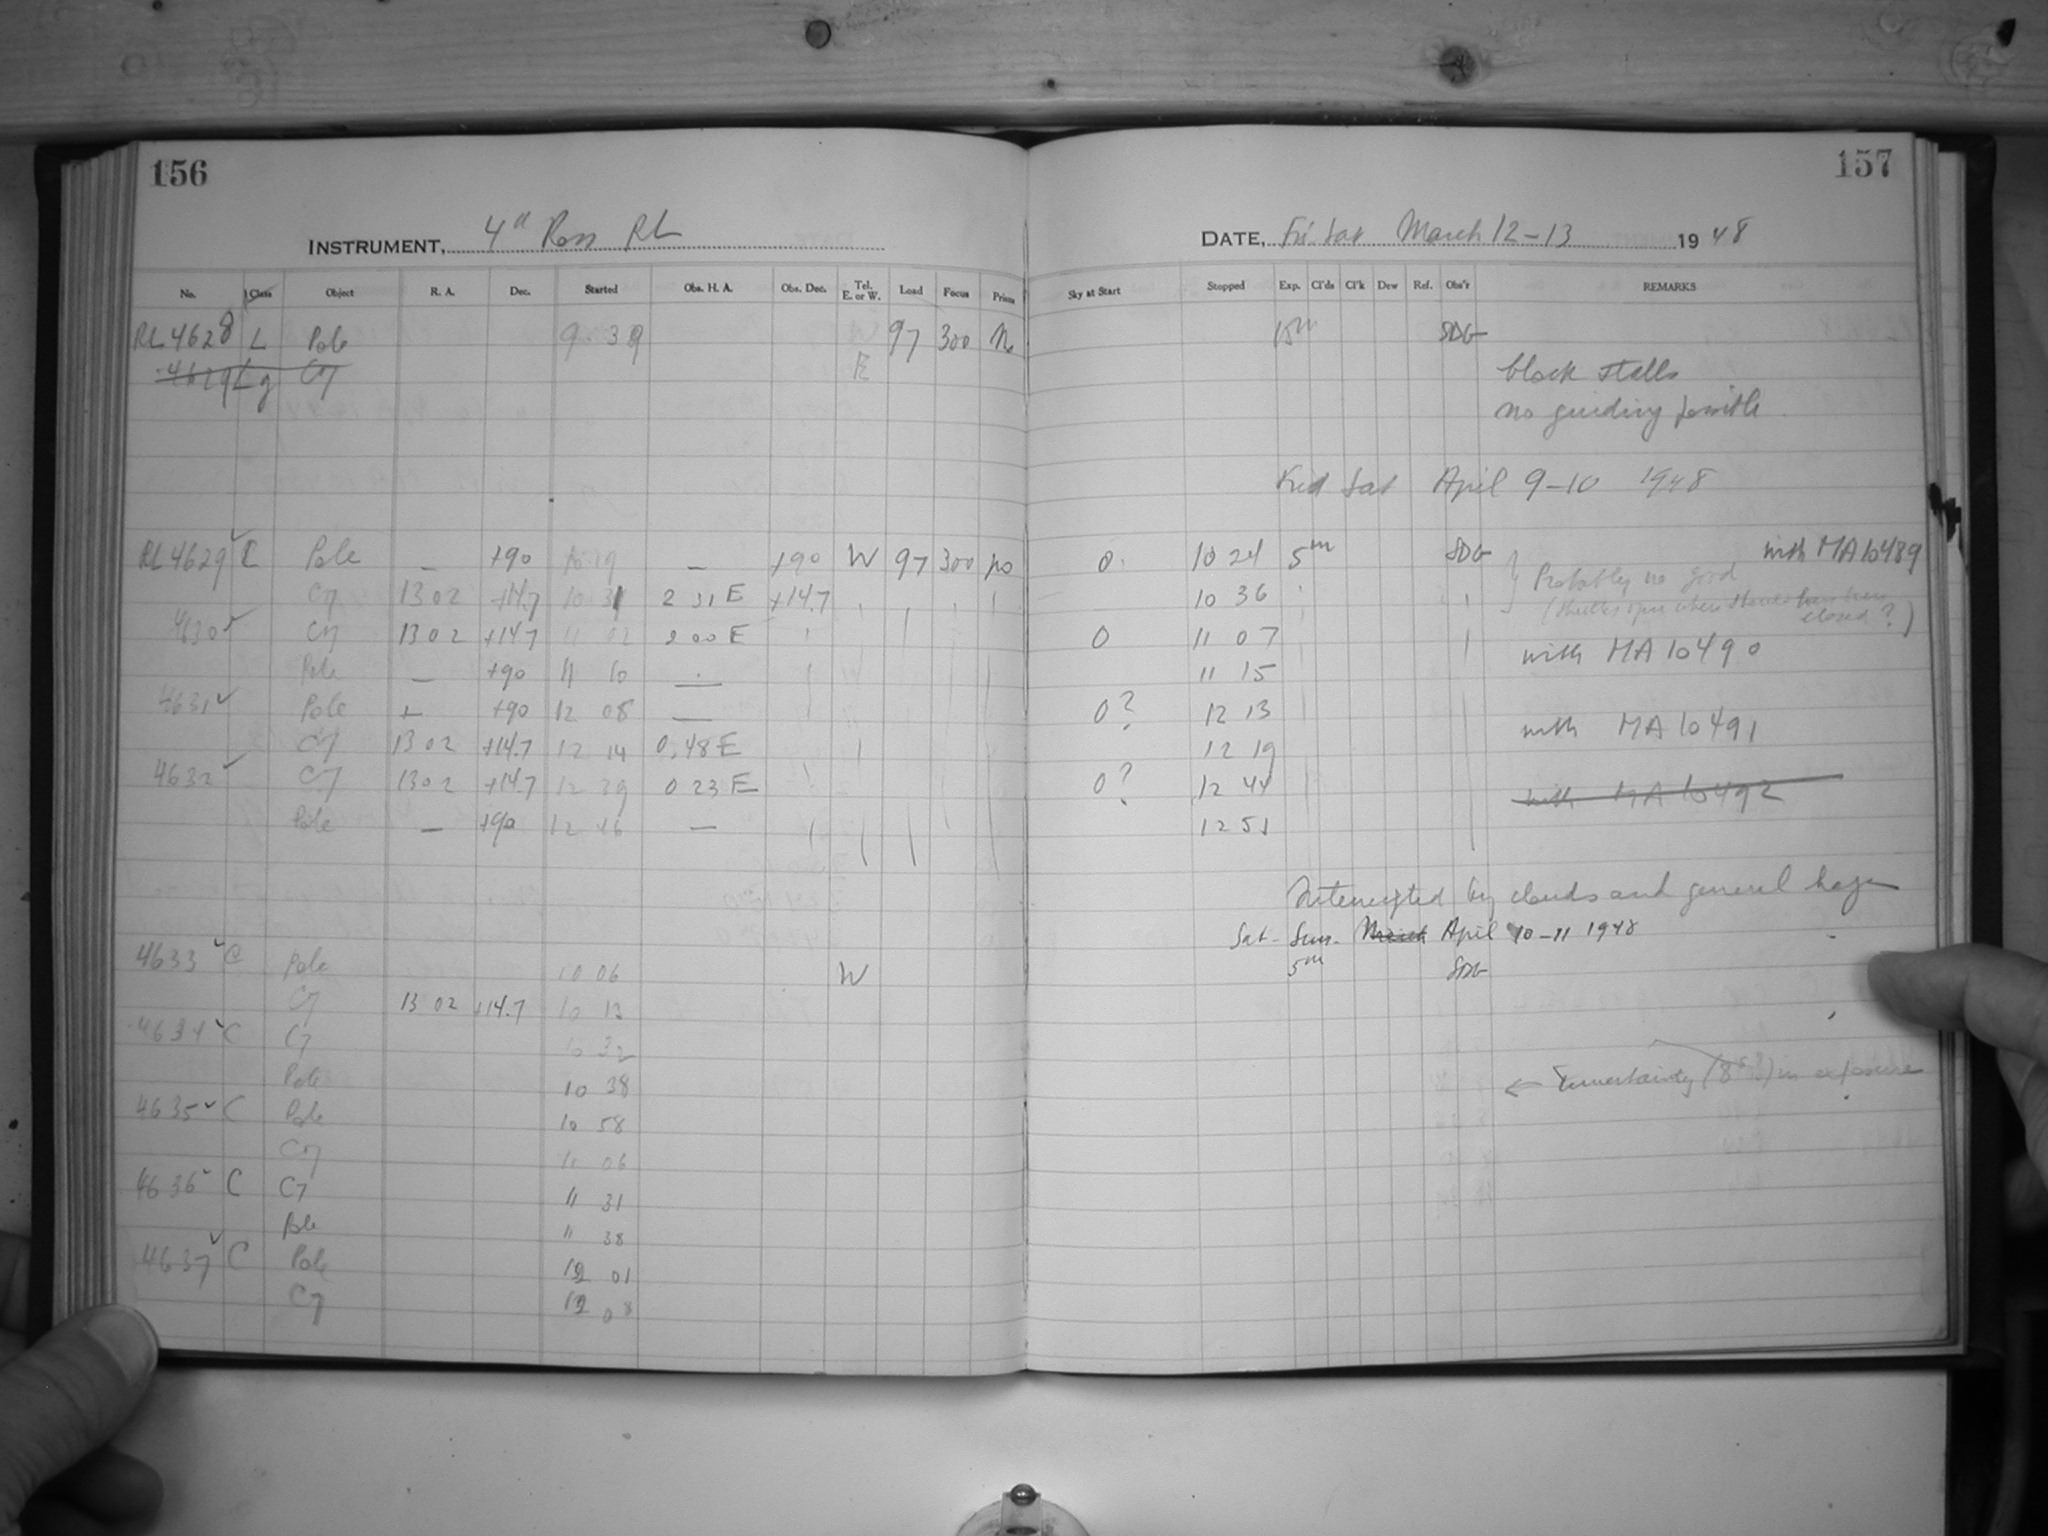 156
157
INSTRUMENT, 4" Ross RL
DATE, Fri-Sat March 12-13 1948
No. Class Object R. A. Dec. Started Obs. H. A. Obs. Dec. Tel. E. or W. Load Focus Prism Sky at Start Stopped Exp. Cl'ds Cl'k Dew Ref. Obs'r REMARKS
RL 4628 L Pole 9 39 W 97 300 No 15m SDG
4629 Lg C7 E
clock stalls
no guiding possible
Frid Sat April 9-10 1948
RL 4629 C Pole — +90 10 19 — +90 W 97 300 no 0 10 24 5m SDG with MA 10489
C7 13 02 +14.7 10 31 2 31 E +14.7 10 36 Probably no good
closed?)
4630 C7 13 02 +14.7 11 02 2 00 E 0 11 07 with MA 10490
Pole — +90 11 10 — 11 15
4631 Pole — +90 12 08 — 0? 12 13
C7 13 02 +14.7 12 14 0.48 E 12 19 with MA 10491
4632 C7 13 02 +14.7 12 39 0 23 E 0? 12 44 with MA 10492
Pole — +90 12 46 — 12 51
Interrupted by clouds and general haze
Sat-Sun. March April 10-11 1948
4633 C Pole 10 06 W 5m SDG
C7 13 02 +14.7 10 13
4634 C C7 10 32
Pole 10 38 ← Uncertainty in exposure
4635 C Pole 10 58
C7 11 06
4636 C C7 11 31
Pole 11 38
4637 C Pole 12 01
C7 12 08